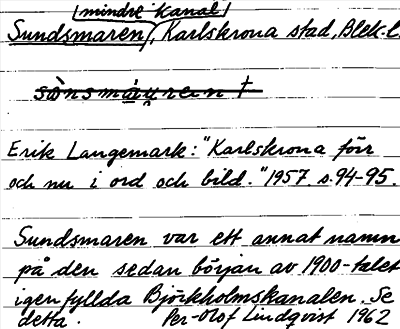 (mindre kanal)
Sundsmaren, Karlskrona stad, Blek. l.
sònsmáyren †
Erik Langemark: "Karlskrona förr
och nu i ord och bild." 1957 s. 94-95.
Sundsmaren var ett annat namn
på den sedan början av 1900-talet
igenfyllda Björkholmskanalen. Se
detta. Per-Olof Lindqvist 1962